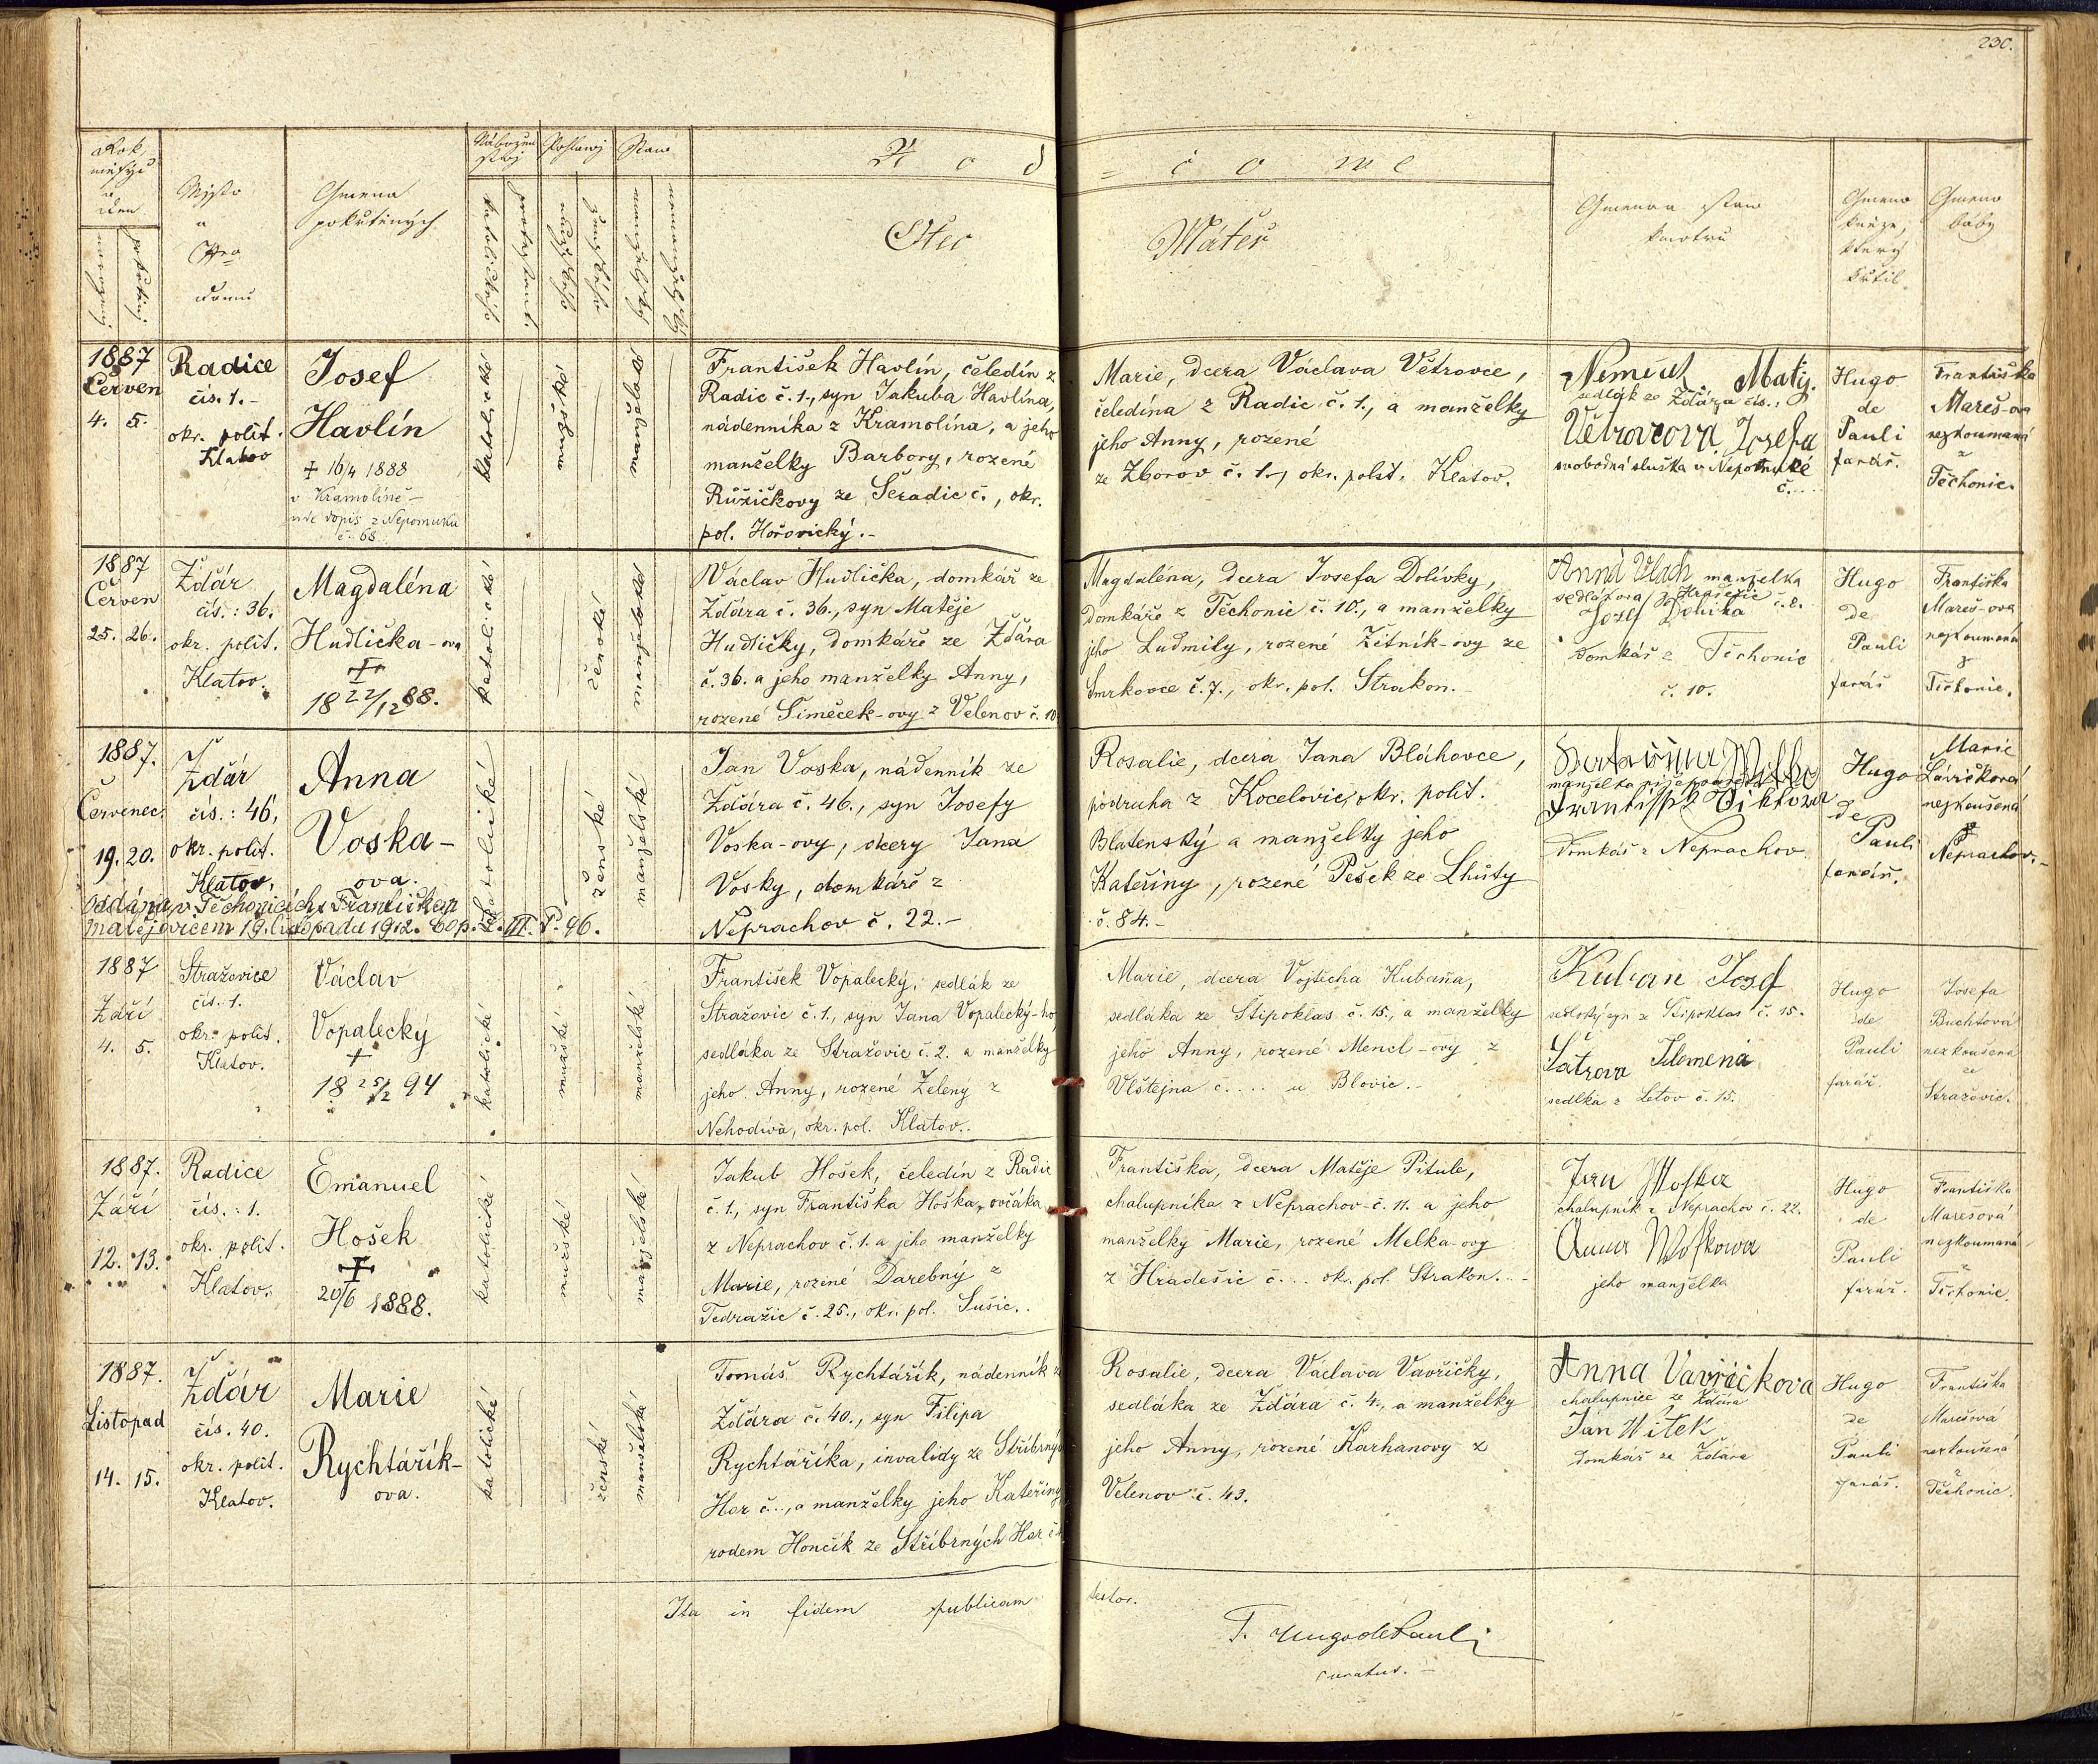 230.
Rok, měsýc a den
Mjsto a Čjslo domu
Gmena pokřtěných
Nábožen stwj
Pohlawj
Staw
Rod - i č o w e
Otec
Máteř
Gmena a staw kmotrů
Gmeno kněze, který křtil.
Gmeno baby
1887
Červen
4. 5.
Radice
čís. 1.-
okr. polit.
Klatov
Josef
Havlín
+ 16/4 1888
v Kramolíně -
vide dopis z Nepomuku
č. 68
katolické
mužské
manželské
František Havlín, čeledín z
Radic č. 1., syn Jakuba Havlína,
nádenníka z Kramolína, a jeho
manželky Barbory, rozené
Růžičkovy ze Šeradic č., okr.
pol. Hořovický.-
Marie, dcera Václava Větrovce,
čeledína z Radic č. 1., a manželky
jeho Anny, rozené
ze Zborov č. 1., okr. polit. Klatov.
Matij.
sedlák ze Žďára čís.:
Větrovcova Josefa
svobodná služka v Nepomuké
č....
Hugo
de
Pauli
farář.
Františka
Mareš-ova
nezkoumaná
z
Těchonic.
1887
Červen
25. 26.
Žďár
čís.: 36.
okr. polit.
Klatov.
Magdaléna
Hudlička-ova
+
18 22/12 88.
katolické
ženské
manželské
Václav Hudlička, domkář ze
Žďára č. 36., syn Matěje
Hudličky, domkáře ze Žďára
č. 36. a jeho manželky Anny,
rozené Šimeček-ovy z Velenov č. 10
Magdaléna, dcera Josefa Dolívky,
domkáře z Těchonic č. 10., a manželky
jeho Ludmily, rozené Žitník-ovy ze
Smrkovce č. 7., okr. pol. Strakon.-
Anna Vlach manželka
sedlákova z Hradešic č. 8.
Josef Dolivka
domkář z Těchonic
č. 10.
Hugo
de
Pauli
farář
Františka
Mareš-ova
nezkoumaná
z
Těchonic.
1887.
Červenec.
19. 20.
Žďár
čís.: 46,
okr. polit.
Klatov.
Anna
Voska-
ova.
Oddána v Těchonicích s Františkem
Matějovicem 19. listopadu 1912. Cop. L. III. P. 96.
katolické
ženské
manželské
Jan Voska, nádenník ze
Žďára č. 46., syn Josefy
Voska-ovy, dcery Jana
Vosky, domkáře z
Neprachov č. 22.-
Rosalie, dcera Jana Bláhovce,
podruha z Kocelovic, okr. polit.
Blatenský a manželky jeho
Kateřiny, rozené Pešek ze Lhůty
č. 84.-
manželka
Domkář z Neprachov
Hugo
de
Pauli
farář.
Marie
Lávičková
nezkoušená
z
Neprachov.-
1887
Září
4. 5.
Stražovice
čís. 1.
okr. polit.
Klatov.
Václav
Vopalecký
+
18 25/2 94
katolické
mužské
manželské
František Vopalecký, sedlák ze
Stražovic č. 1., syn Jana Vopalecký-ho,
sedláka ze Stražovic č. 2. a manželky
jeho Anny, rozené Zelený z
Nehodiva, okr. pol. Klatov..
Marie, dcera Vojtěcha Kubaňa,
sedláka ze Štipoklas č. 15., a manželky
jeho Anny, rozené Mencl-ovy z
Vlštejna č.... u Blovic.-
Kuban Josef
selský syn z Štipoklas č. 15.
Šatrova Filomena
sedlka z Letov č. 15.
Hugo
de
Pauli
farář.
Josefa
Buchtová
nezkoušená
ze
Stražovic.
1887.
Září
12. 13.
Radice
čís.: 1.
okr. polit.
Klatov.
Emanuel
Hošek
+
20/6 1888.
katolické
mužské
manželské
Jakub Hošek, čeledín z Radic
č. 1., syn Františka Hoška, ovčáka
z Neprachov č. 1. a jeho manželky
Marie, rozené Darebný z
Tedražic č. 25., okr. pol. Sušic..
Františka, dcera Matěje Pitule,
chalupníka z Neprachov č. 11. a jeho
manželky Marie, rozené Melka-ovy
z Hradešic č.... okr. pol. Strakon...-
Jan Woska
chalupník z Neprachov č. 22.
Anna Woskowa
jeho manželka
Hugo
de
Pauli
farář.
Františka
Marešová
nezkoumaná
z
Těchonic.
1887.
Listopad
14. 15.
Žďár
čís. 40.
okr. polit.
Klatov.
Marie
Rychtářík-
ova.
katolické
ženské
manželské
Tomáš Rychtářík, nádenník z
Žďára č. 40., syn Filipa
Rychtáříka, invalidy ze Stříbrných
Hor č..., a manželky jeho Kateřiny
rodem Hončík ze Stříbrných Hor č.
Rosalie, dcera Václava Vavřičky,
sedláka ze Žďára č. 4., a manželky
jeho Anny, rozené Karhanovy z
Velenov č. 43.
Anna Vavřičkova
chalupnice ze Žďára
Jan Witek
Domkář ze Žďára
Hugo
de
Pauli
farář.
Františka
Marešová
nezkoušená
z
Těchonic.
Ita in fidem publicam testor.
F. Hugo de Pauli
curatus.-